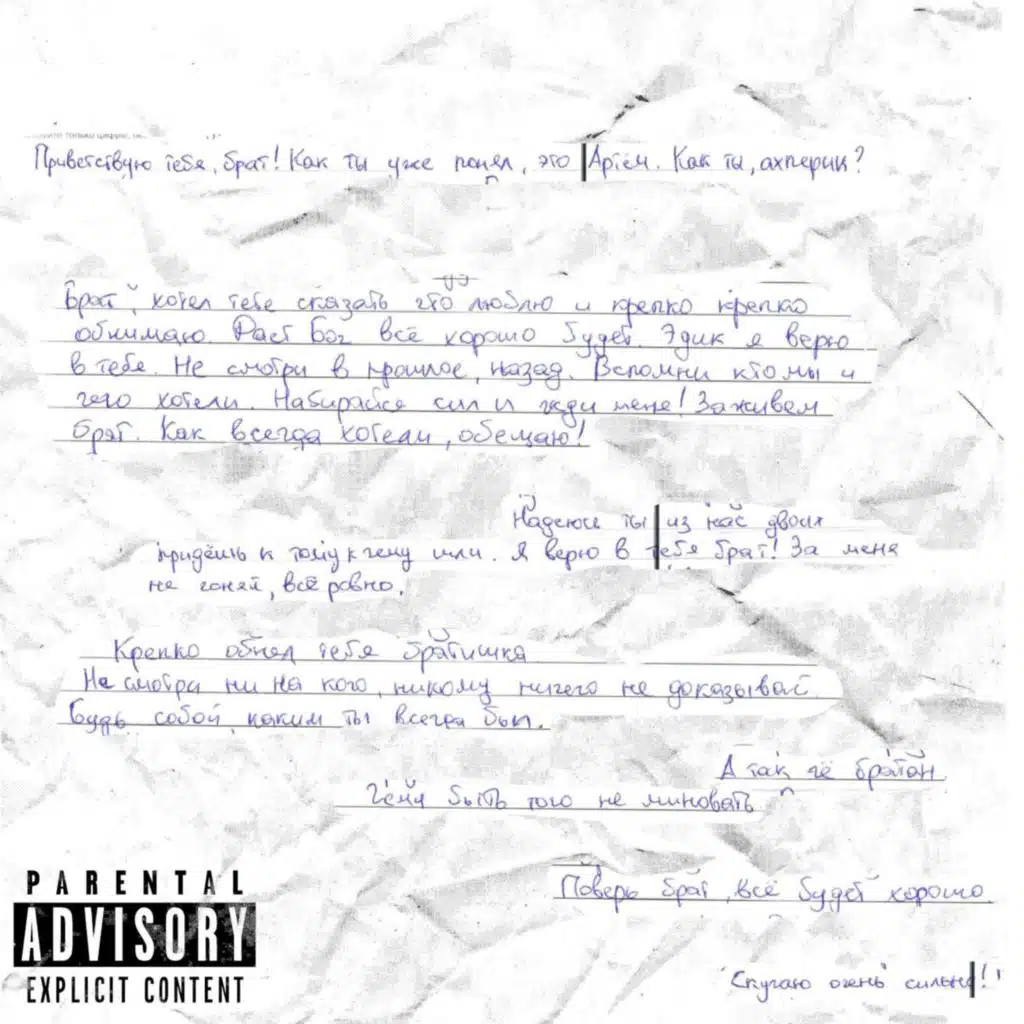 Приветствую тебя, брат! Как ты уже понял, это Артём. Как ты, ахперик?
Брат, хотел тебе сказать что люблю и крепко крепко
обнимаю. Даст Бог всё хорошо будет. Эдик я верю
в тебе. Не смотри в прошлое, назад. Вспомни кто мы и
чего хотели. Набирайся сил и жди меня! Заживем
брат. Как всегда хотели, обещаю!
Надеюсь ты из нас двоих
придёшь к тому к чему шли. Я верю в тебя брат! За меня
не гоняй, всё ровно.
Крепко обнял тебя братишка
Не смотра ни на кого, никому ничего не доказывай
Будь собой, каким ты всегда был.
А так чё братан
Чему быть того не миновать
Поверь брат, всё будет хорошо
Скучаю очень сильно!
PARENTAL
ADVISORY
EXPLICIT CONTENT